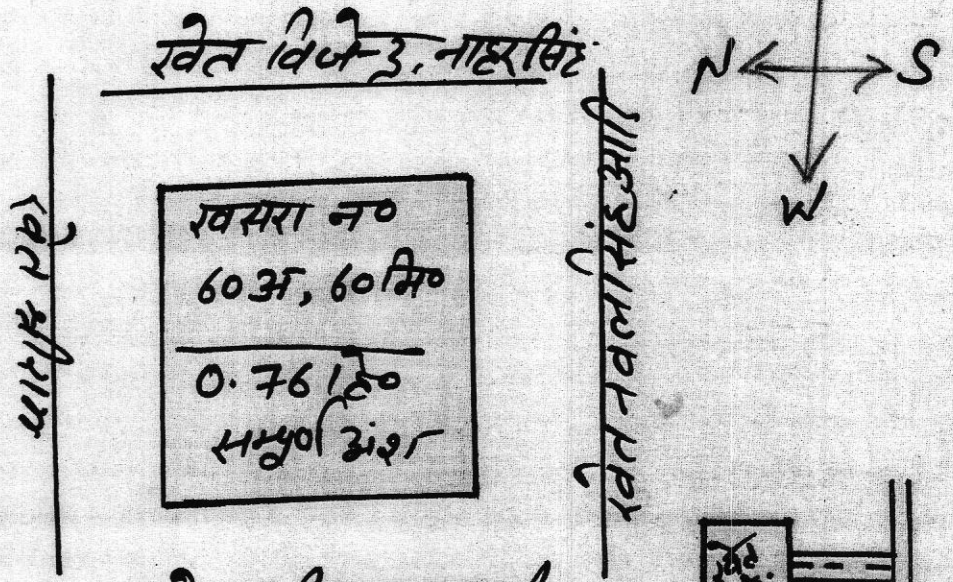 खेत विजेन्द्र, नाहरसिंह
N S
W
खसरा न०
60अ, 60मि०
0.761हे०
सम्पूर्ण अंश
खेत नवलसिंह आदि